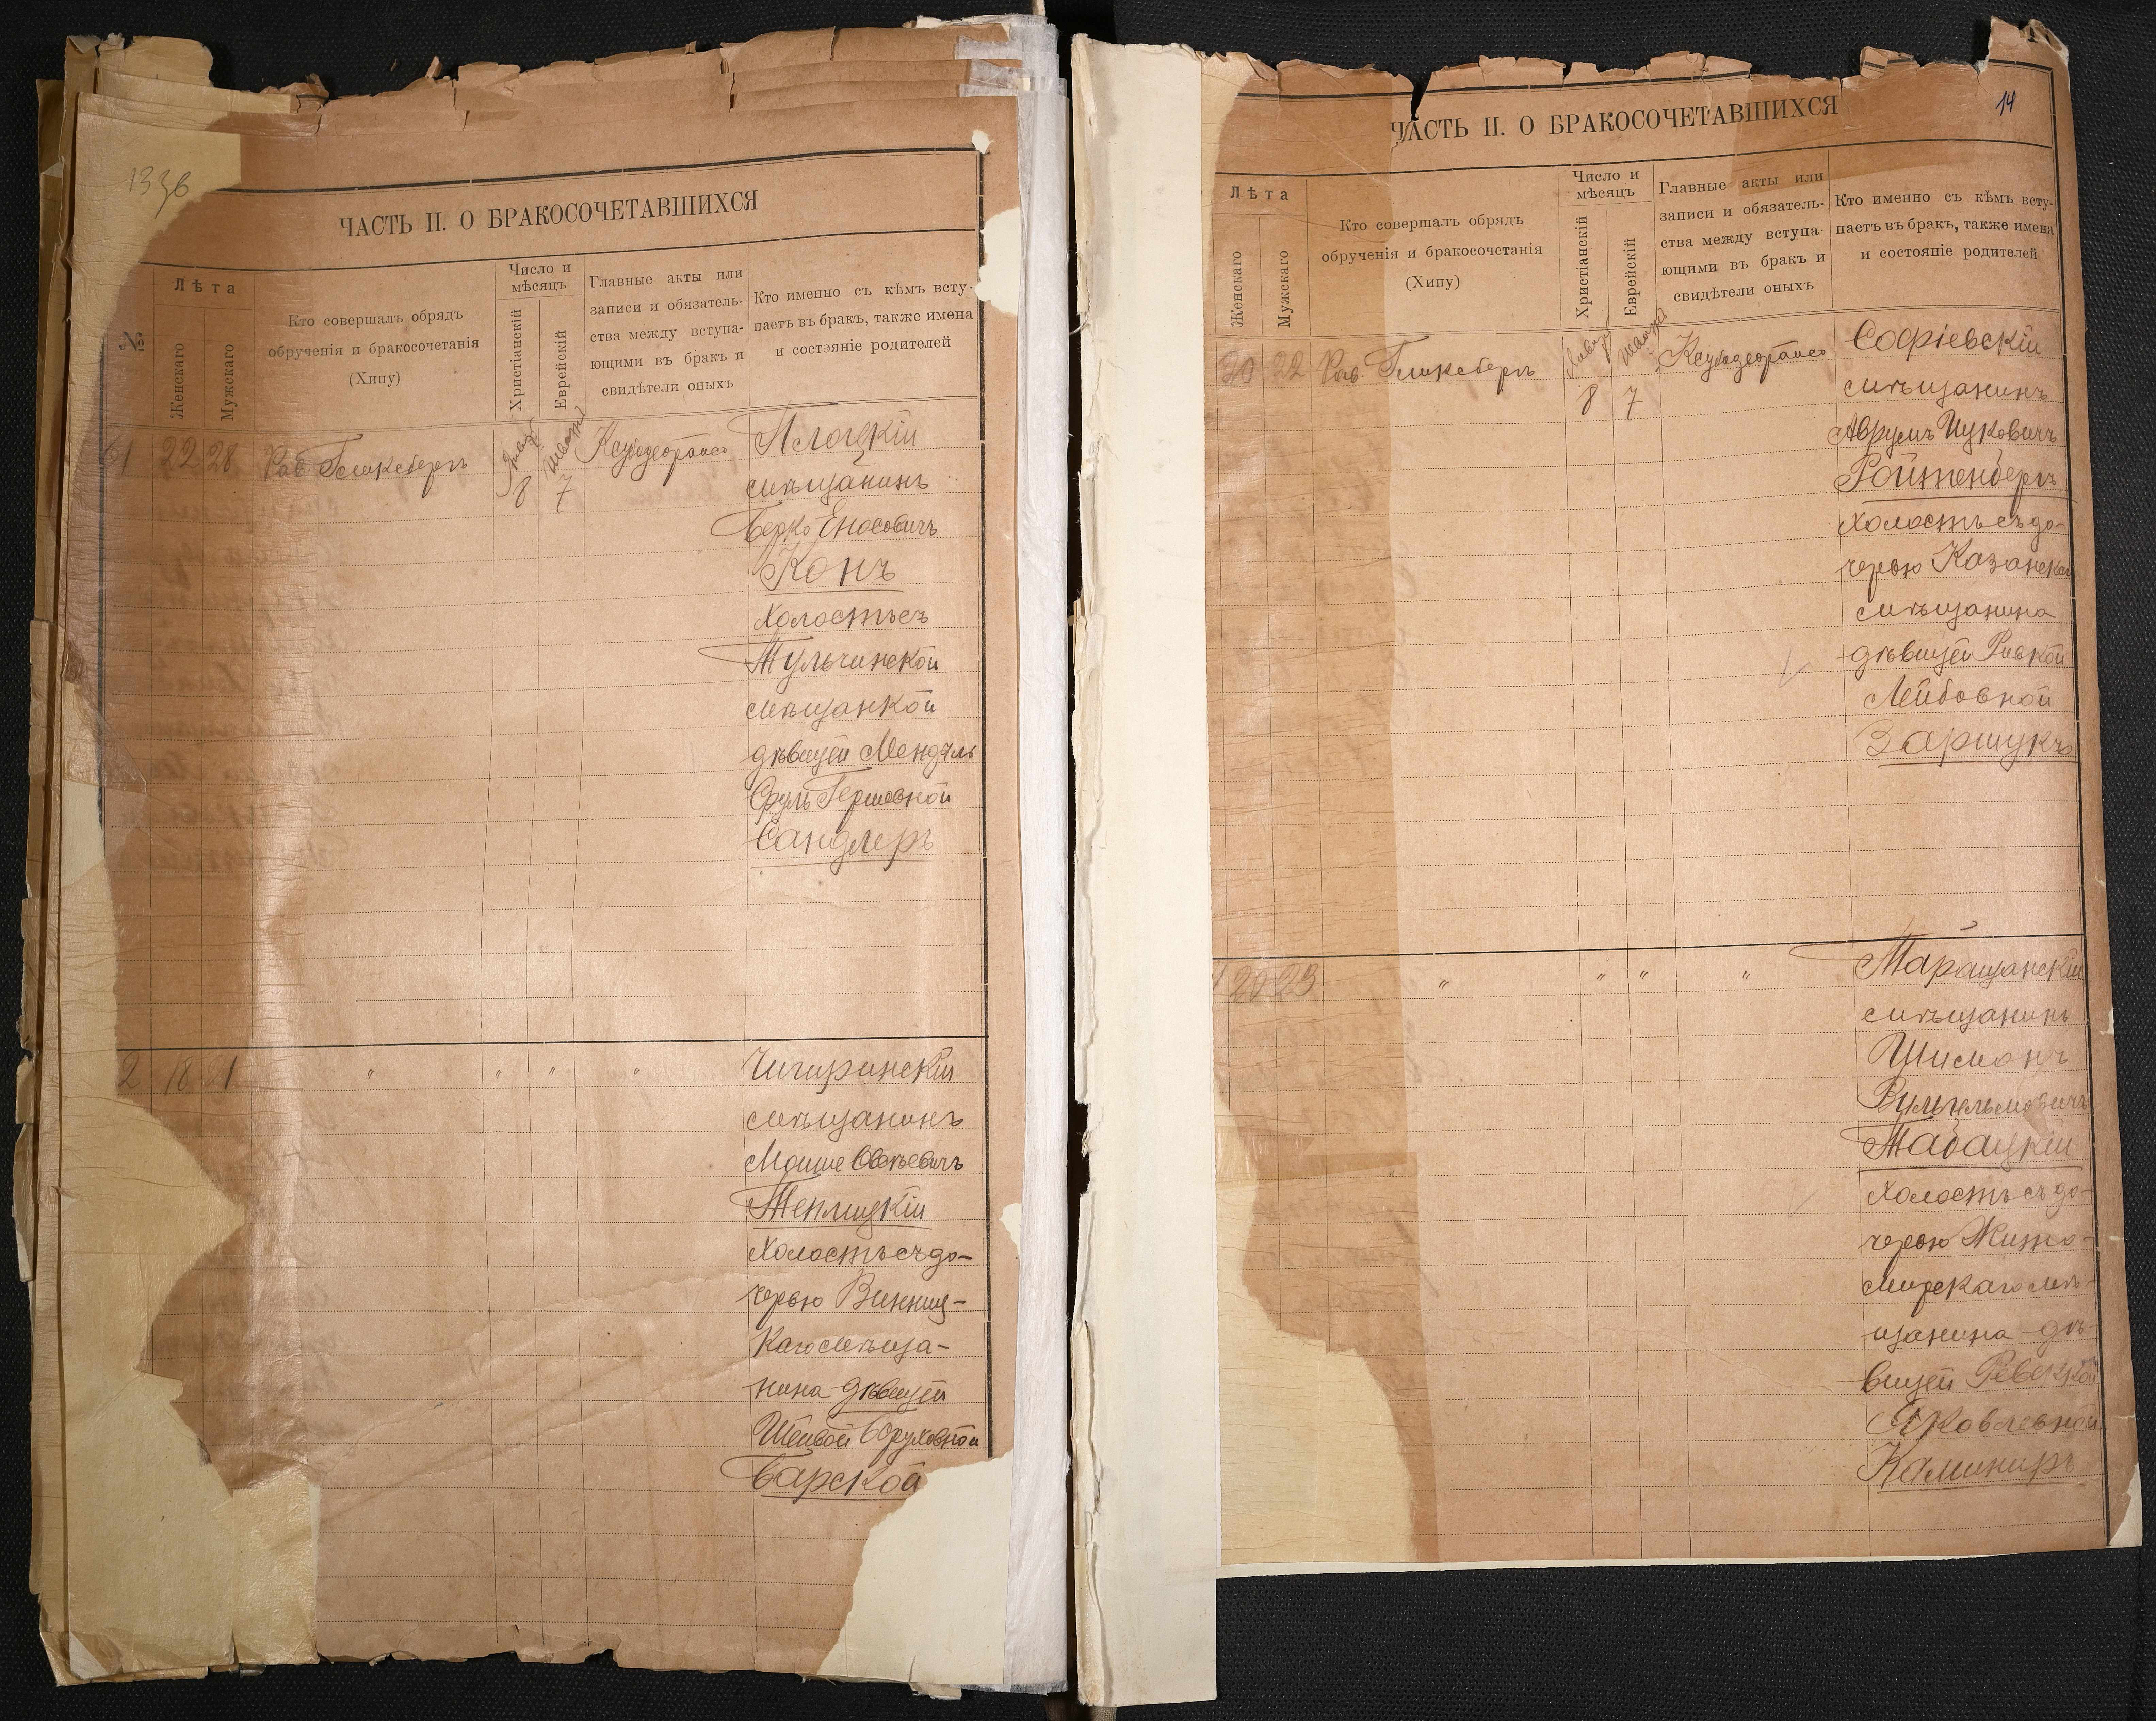 ЧАСТЬ II. О БРАКОСОЧЕТАВШИХСЯ
№
Лѣта
Женскаго
Мужскаго
Кто совершалъ обрядъ
обрученія и бракосочетанія
(Хипу)
Число и
мѣсяцъ
Христіанскій
Еврейскій
Главные акты или
записи и обязатель-
ства между вступа-
ющими въ бракъ и
свидѣтели оныхъ
Кто именно съ кѣмъ всту-
паетъ въ бракъ, также имена
и состэяніе родителей
61 22 28 Рав. Гликсбергъ 8 7 Плоцкій
мѣщанинъ
Берко Еносовичъ
Конъ
холостъ съ
Тульчинской
мѣщанкой
дѣвицей Мендель
Фруль Гершовной
Сандлеръ
2 18 21 " " " " Чигиринскій
мѣщанинъ
Мошие Овсѣевичъ
Теплицкій
холостъ съ до-
черью Винниц-
каго мѣща-
нина дѣвицей
Шейвой Бруховной
Барской
14
ЧАСТЬ II. О БРАКОСОЧЕТАВШИХСЯ
Лѣта
Женскаго
Мужскаго
Кто совершалъ обрядъ
обрученія и бракосочетанія
(Хипу)
Число и
мѣсяцъ
Христіанскій
Еврейскій
Главные акты или
записи и обязатель-
ства между вступа-
ющими въ бракъ и
свидѣтели оныхъ
Кто именно съ кѣмъ всту-
паетъ въ бракъ, также имена
и состояніе родителей
20 22 Рав. Гликсбергъ 8 7 Софіевскій
мѣщанинъ
Аврумъ Ицковичъ
Ройтенбергъ
холостъ съ до-
черью Казанскаго
мѣщанина
дѣвицей Ривкой
Лейбовной
Заришукъ
20 23 " " " " Таращанскій
мѣщанинъ
Шисманъ
Вульгельмовичъ
Табацкій
холостъ съ до-
черью Жито-
мирскаго мѣ-
щанина дѣ-
вицей Ревеккой
Яковлевной
Каминиръ